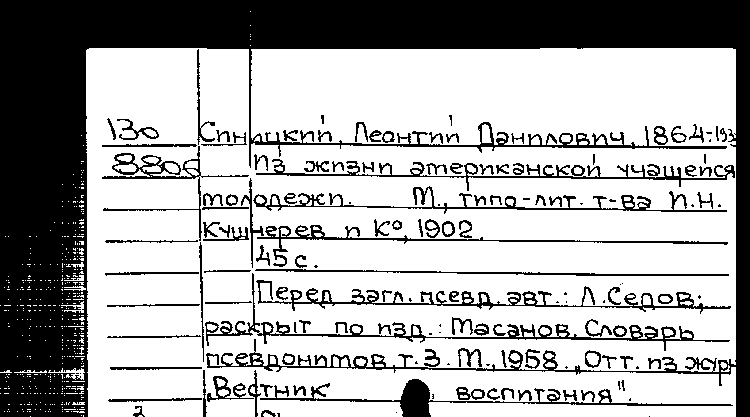 130 Синицкий, Леонтий Данилович, 1864-193
8806 Из жизни американской учащейся
молодежи. М., типо-лит. т-ва И.Н.
Кушнерев и К°, 1902.
45 с.
Перед загл. псевд. авт.: Л. Седов;
раскрыт по изд.: Масанов. Словарь
псевдонимов, т. 3. М., 1958. „Отт. из журн
„Вестник воспитания".
2